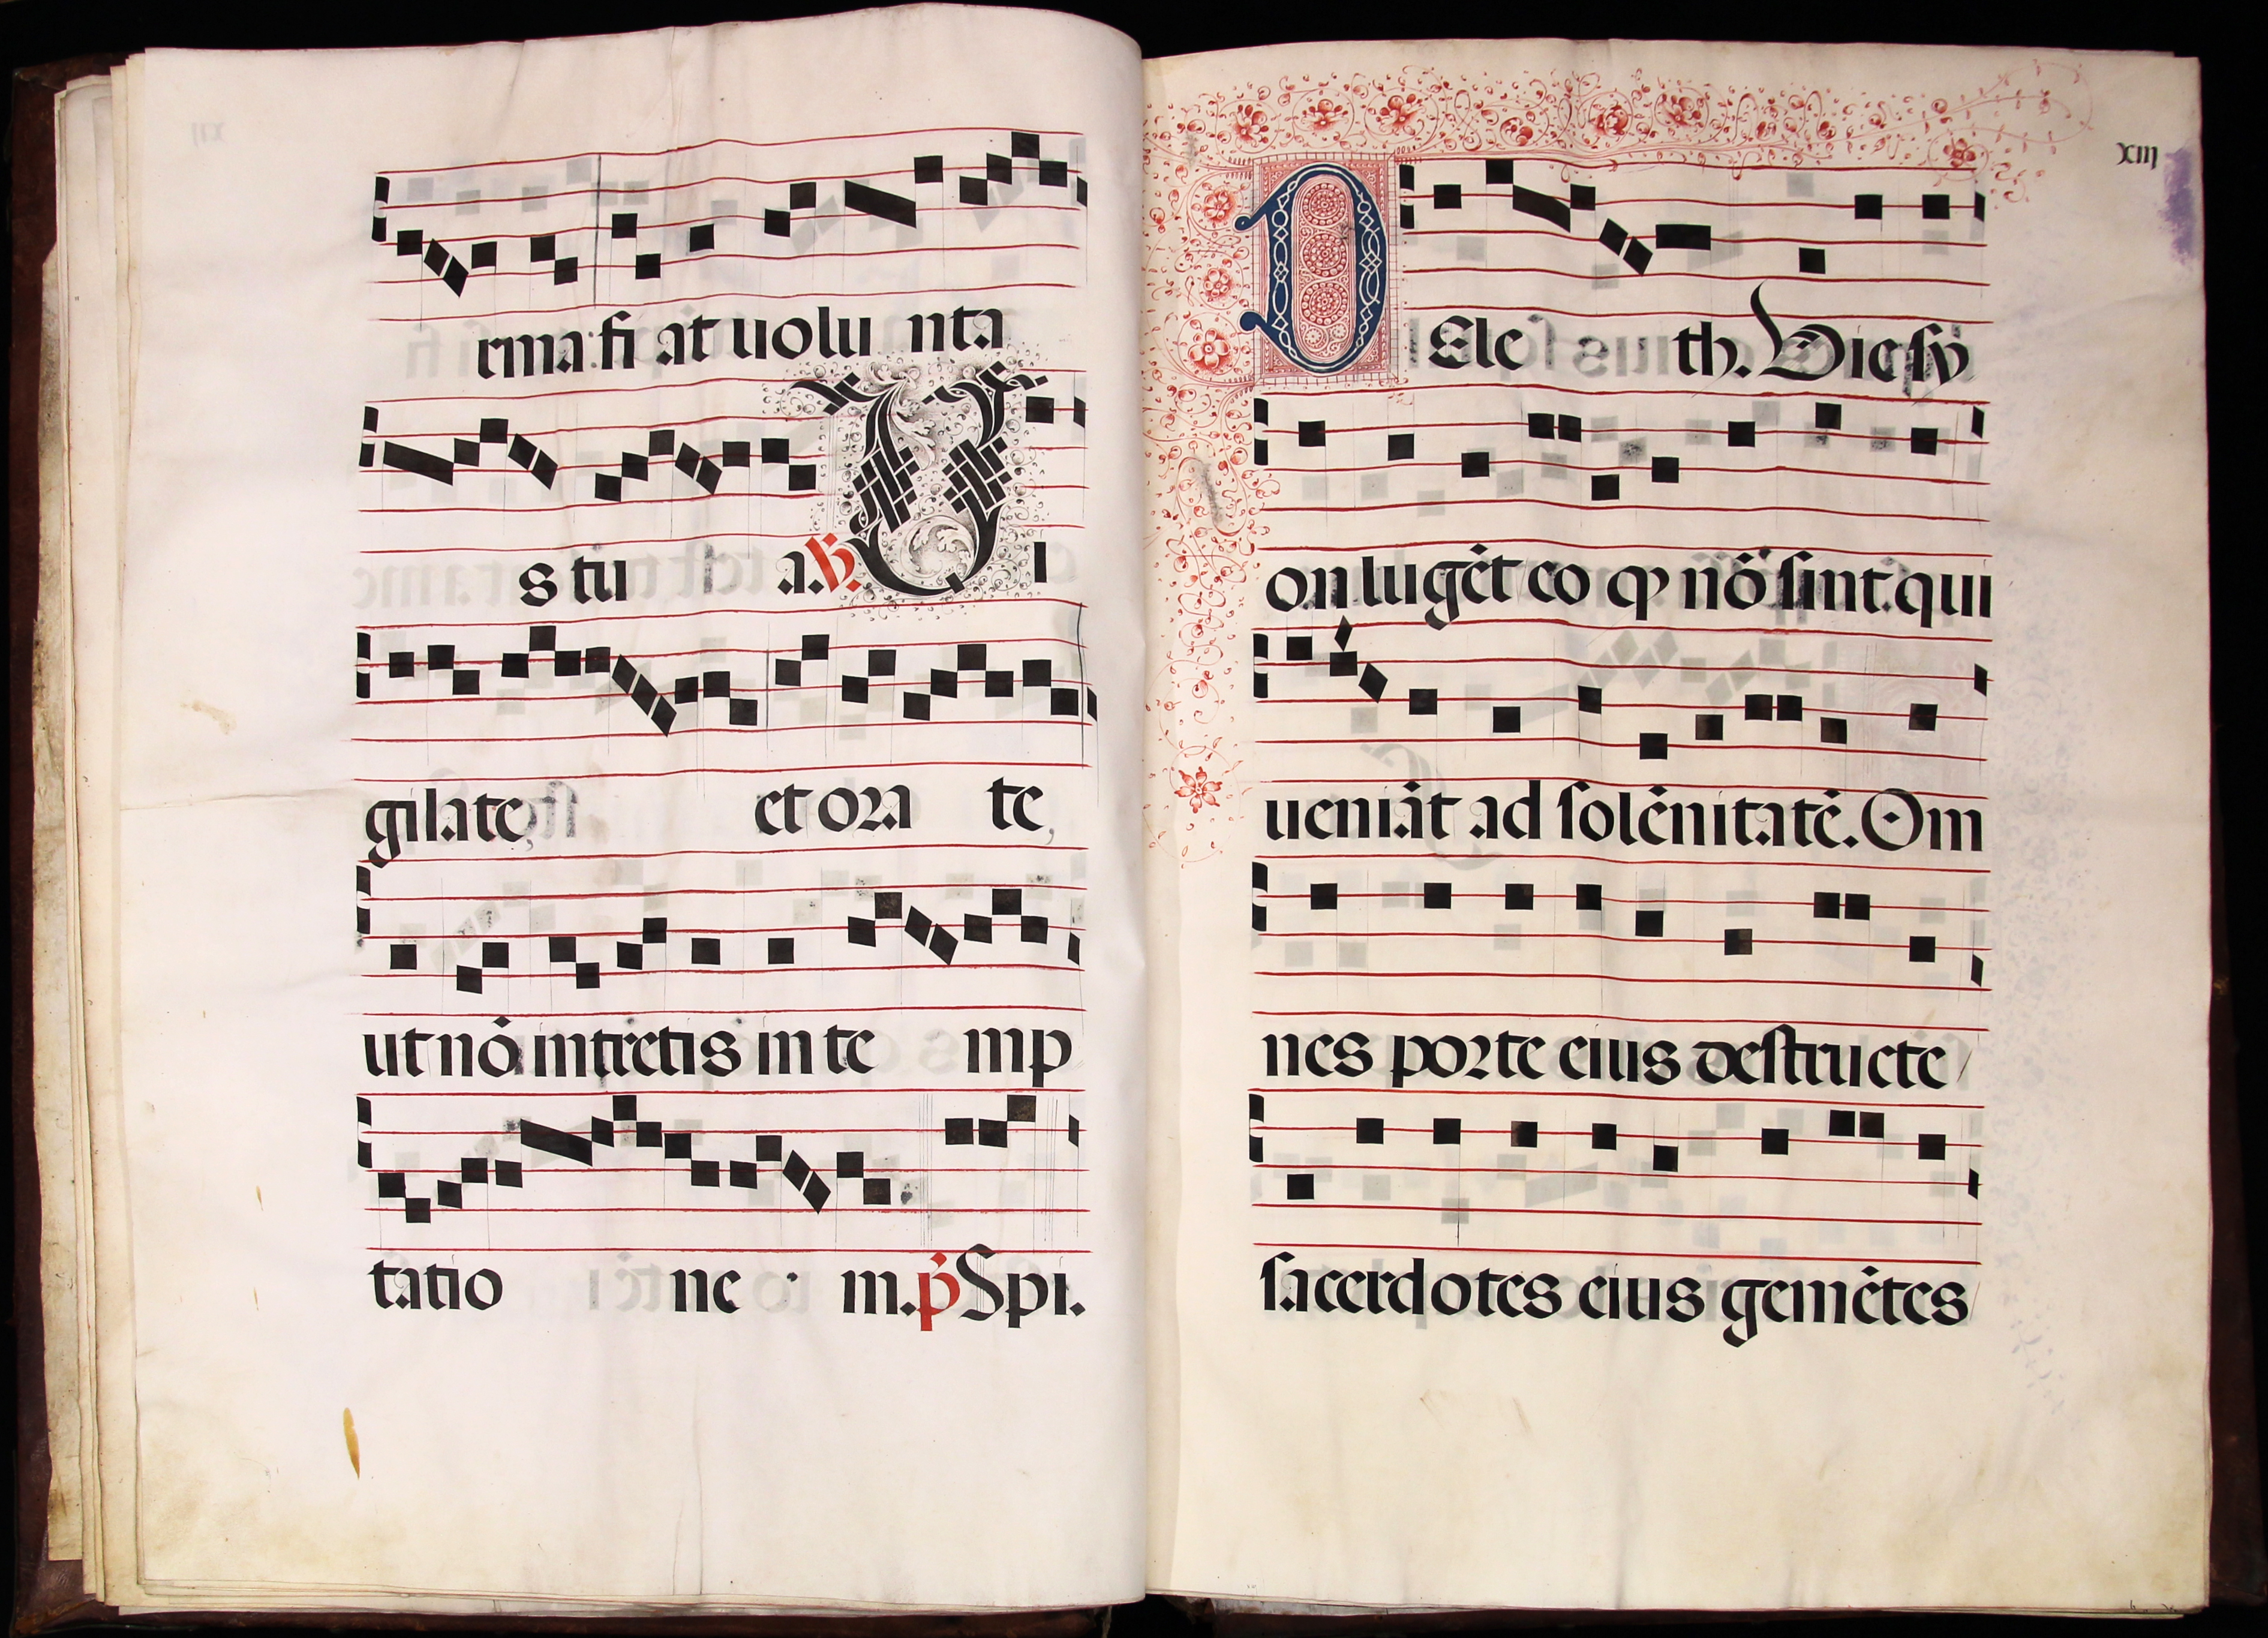 rma: fi at uolu nta
s tu a. ℟. V i
gilate, et ora te,
ut nō intretis in te mp
tatio ne m. p̄ Spi.
XIIJ
D Ele th. Vie sy
on lugēt eo qȝ nō sint. qui
ueniāt ad solēnitatē. Om
nes porte eius destructe
sacerdotes eius gemētes